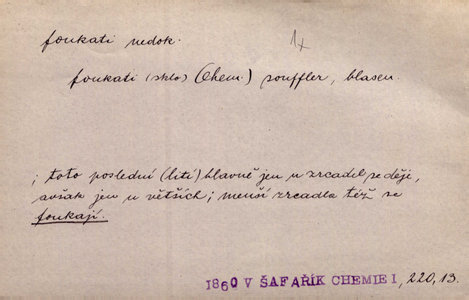 foukati nedok.
1x
foukati (sklo) (Chem.) souffler, blasen.
; toto poslední (lití) hlavně jen u zrcadel se děje,
avšak jen u větších; menší zrcadla též se
foukají.
1860 V ŠAFAŘÍK CHEMIE I, 220, 13.